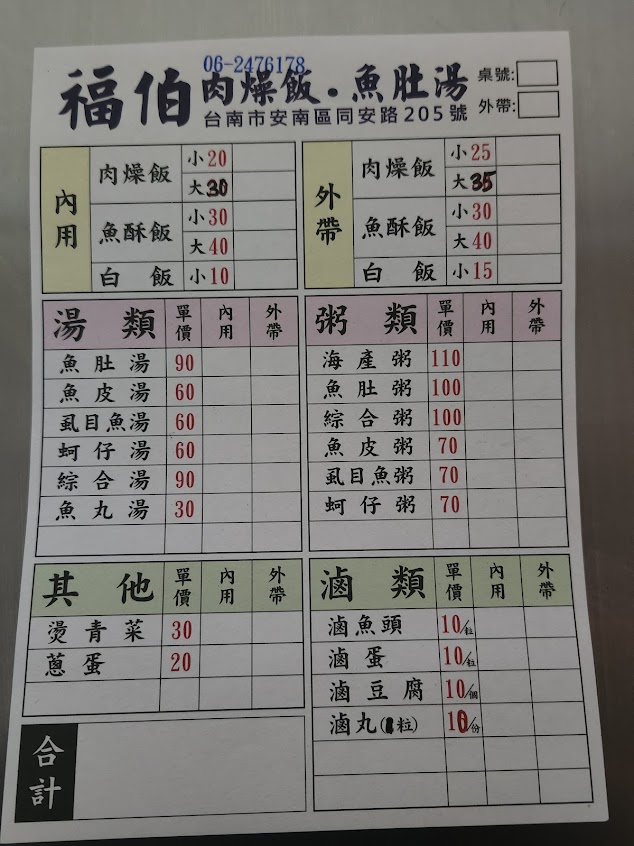 06-2476178
福伯 肉燥飯.魚肚湯
台南市安南區同安路205號
桌號:
外帶:
內用
肉燥飯 小20
大30
魚酥飯 小30
大40
白飯 小10
外帶
肉燥飯 小25
大35
魚酥飯 小30
大40
白飯 小15
湯類 單價 內用 外帶
魚肚湯 90
魚皮湯 60
虱目魚湯 60
蚵仔湯 60
綜合湯 90
魚丸湯 30
粥類 單價 內用 外帶
海產粥 110
魚肚粥 100
綜合粥 100
魚皮粥 70
虱目魚粥 70
蚵仔粥 70
其他 單價 內用 外帶
燙青菜 30
蔥蛋 20
滷類 單價 內用 外帶
滷魚頭 10/粒
滷蛋 10/粒
滷豆腐 10/個
滷丸(1粒) 10/份
合計